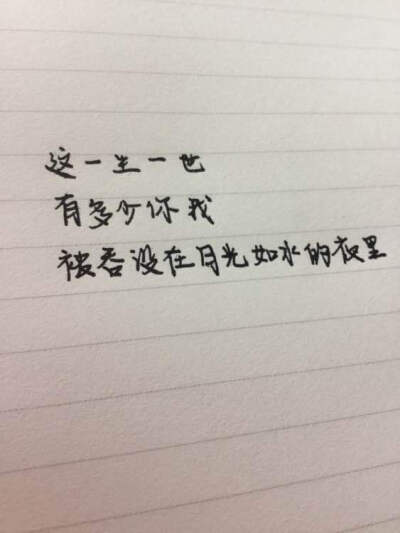 这一生一世
有多少你我
被吞没在月光如水的夜里